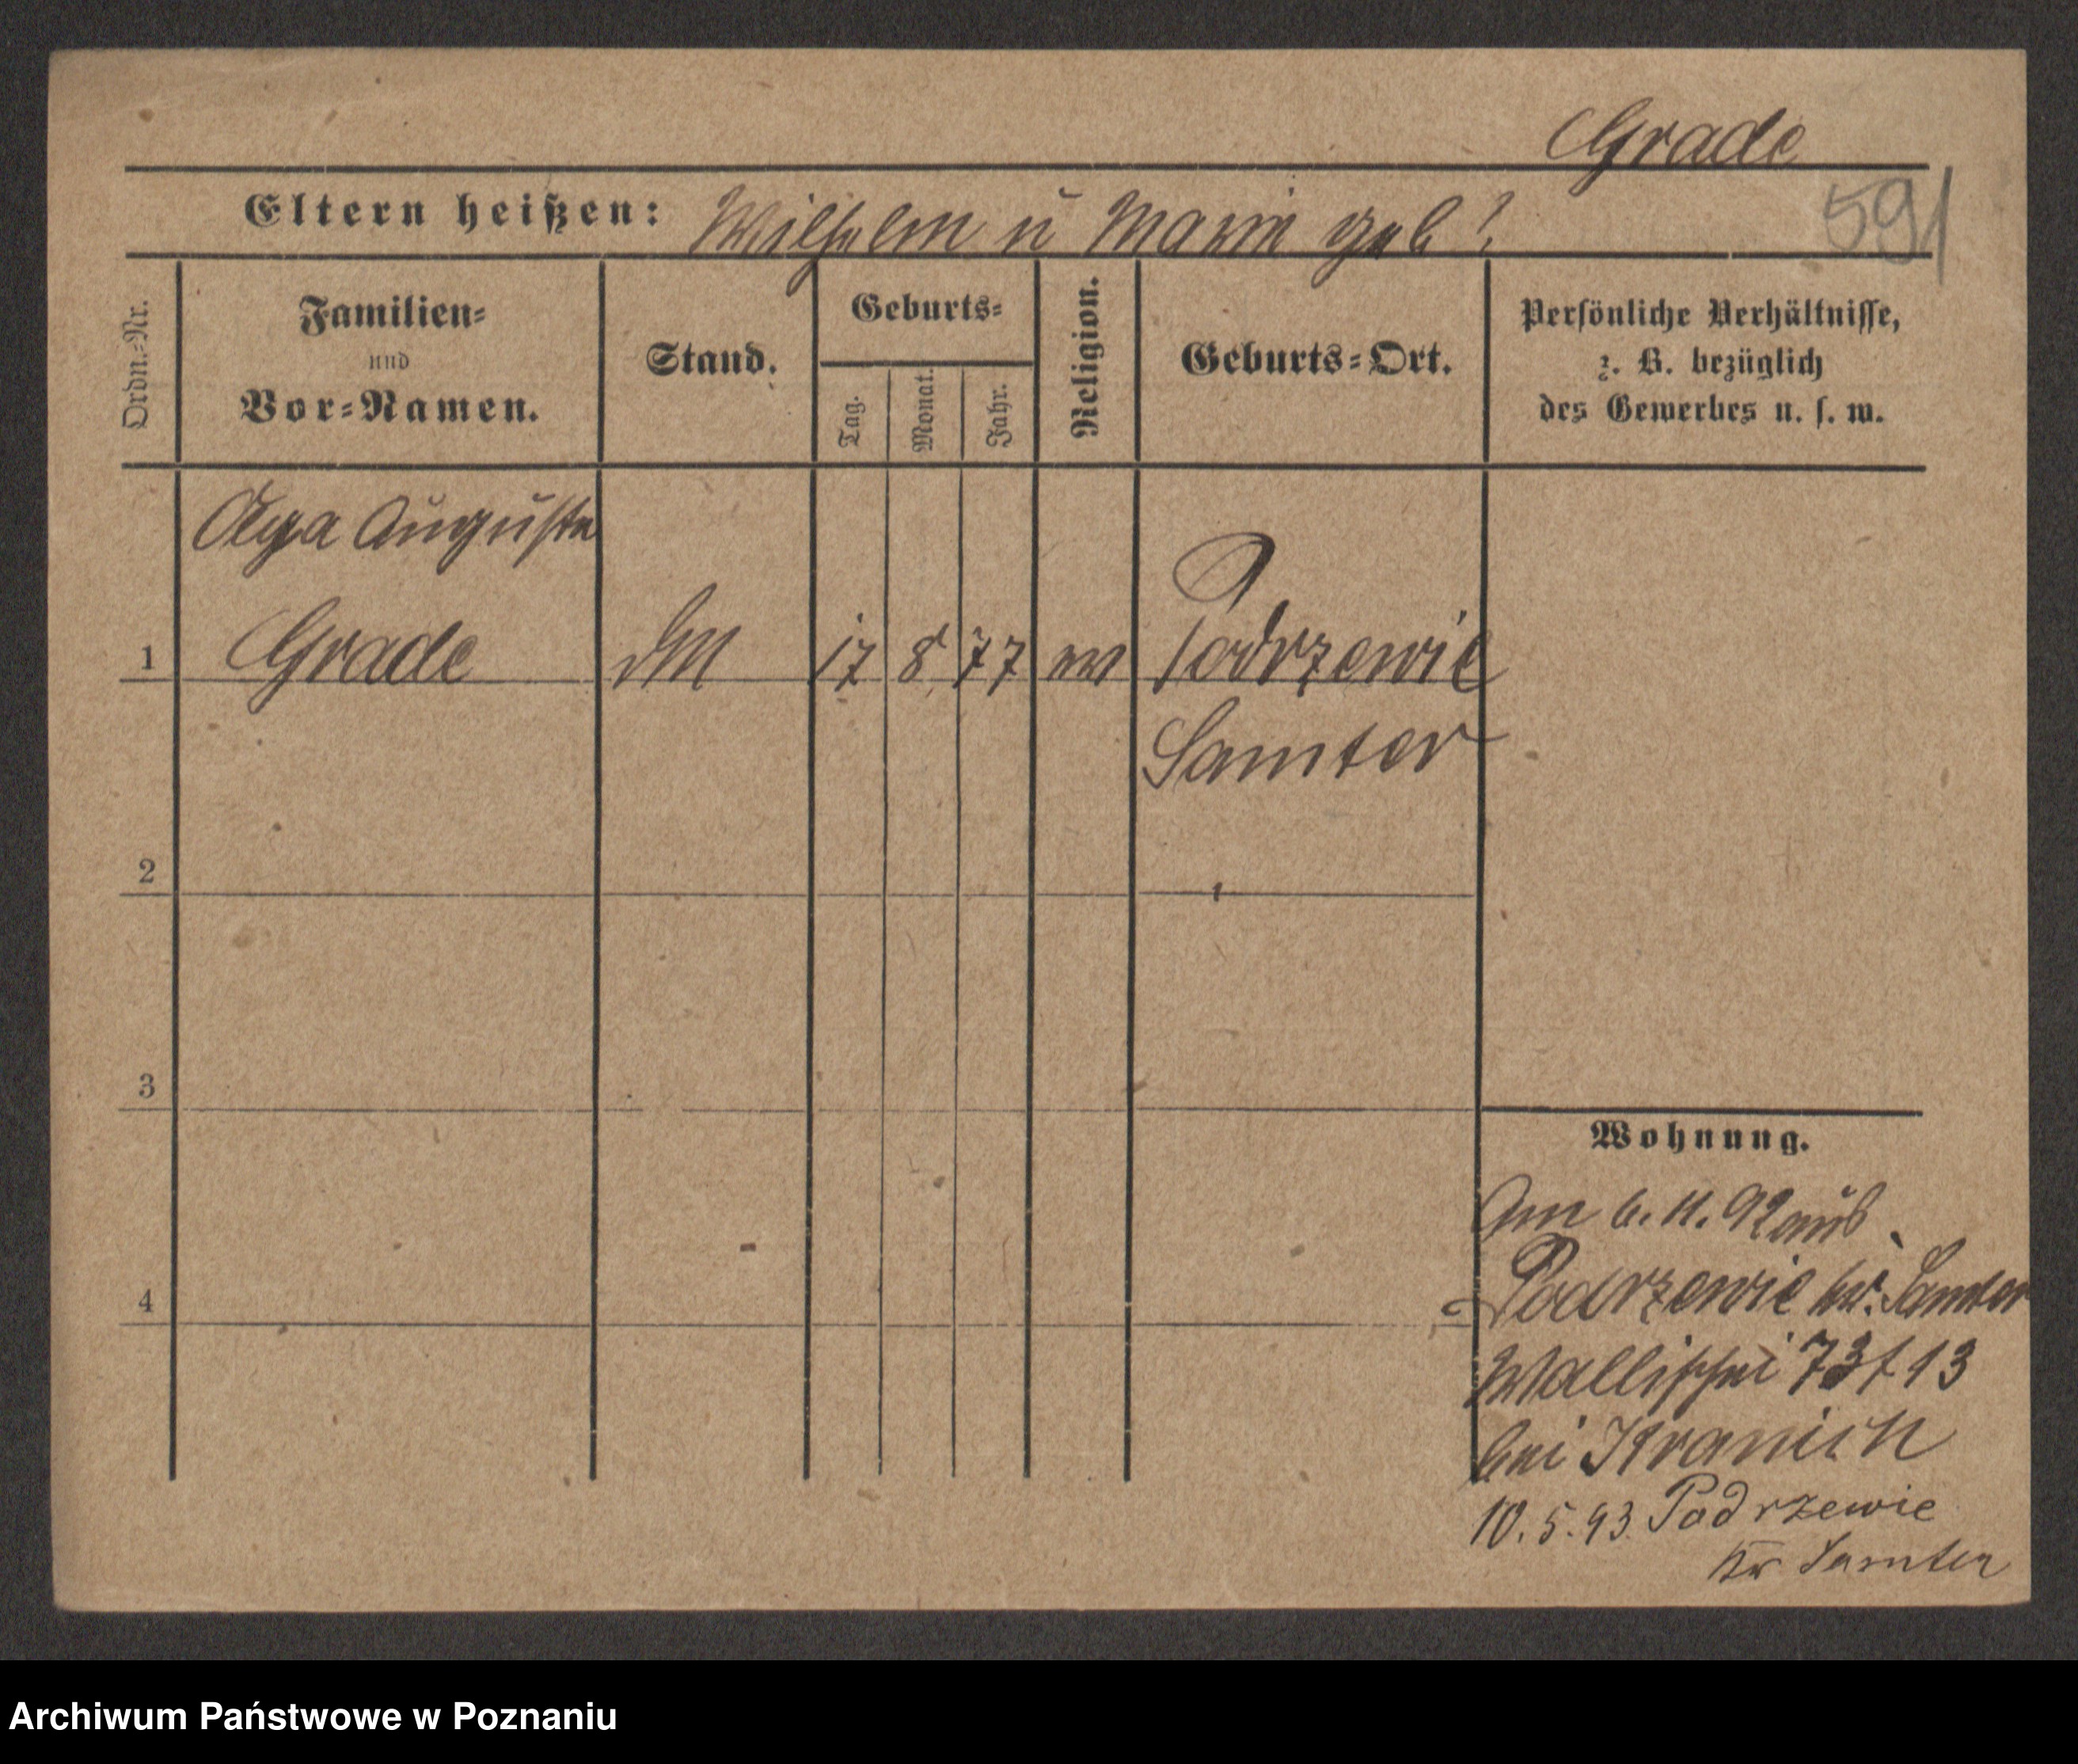 Grade
591
Eltern heißen: Wilhelm u Marie geb?
Ordn.-Nr.
Familien-
und
Vor-Namen.
Stand.
Geburts-
Tag.
Monat.
Jahr.
Religion.
Geburts-Ort.
Persönliche Verhältnisse,
z. B. bezüglich
des Gewerbes u. s. w.
Olga Auguste
1 Grade DM 17 8 77 ev Podrzewie
Samter
2
3
4
Wohnung.
Am 6. 11. 92 aus
Podrzewie kr. Samter
Wallischei 73 t 13
bei Kranich
10. 5. 93 Podrzewie
Kr Samter
Archiwum Państwowe w Poznaniu